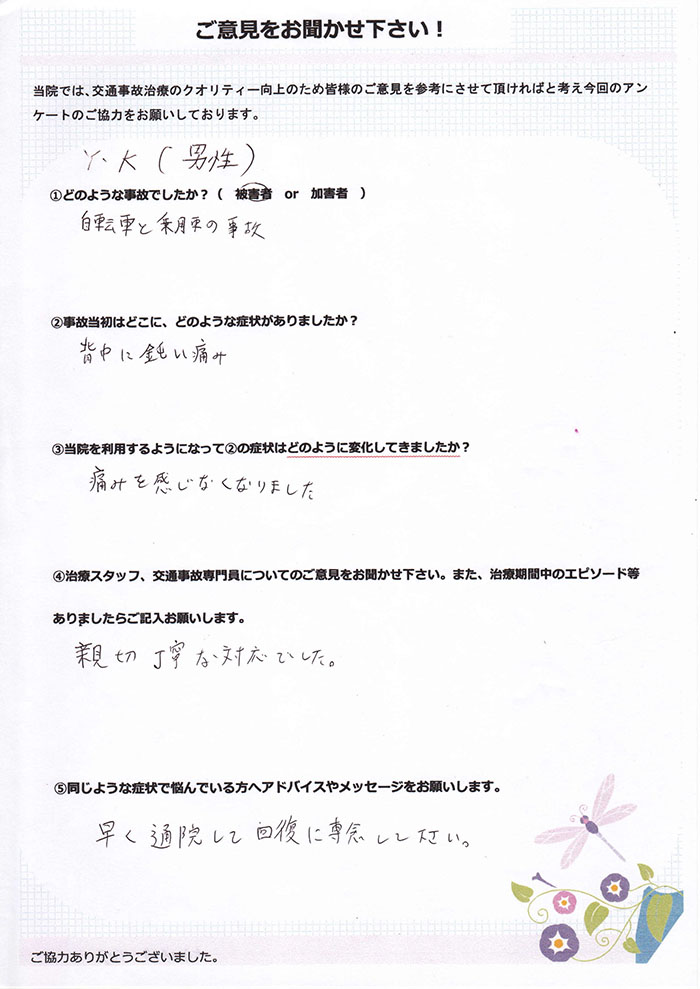 ご意見をお聞かせ下さい！
当院では、交通事故治療のクオリティー向上のため皆様のご意見を参考にさせて頂ければと考え今回のアン
ケートのご協力をお願いしております。
Y.K（男性）
①どのような事故でしたか？（　被害者　or　加害者　）
自転車と乗用車の事故
②事故当初はどこに、どのような症状がありましたか？
背中に鈍い痛み
③当院を利用するようになって②の症状はどのように変化してきましたか？
痛みを感じなくなりました
④治療スタッフ、交通事故専門員についてのご意見をお聞かせ下さい。また、治療期間中のエピソード等
ありましたらご記入お願いします。
親切丁寧な対応でした。
⑤同じような症状で悩んでいる方へアドバイスやメッセージをお願いします。
早く通院して回復に専念して下さい。
ご協力ありがとうございました。